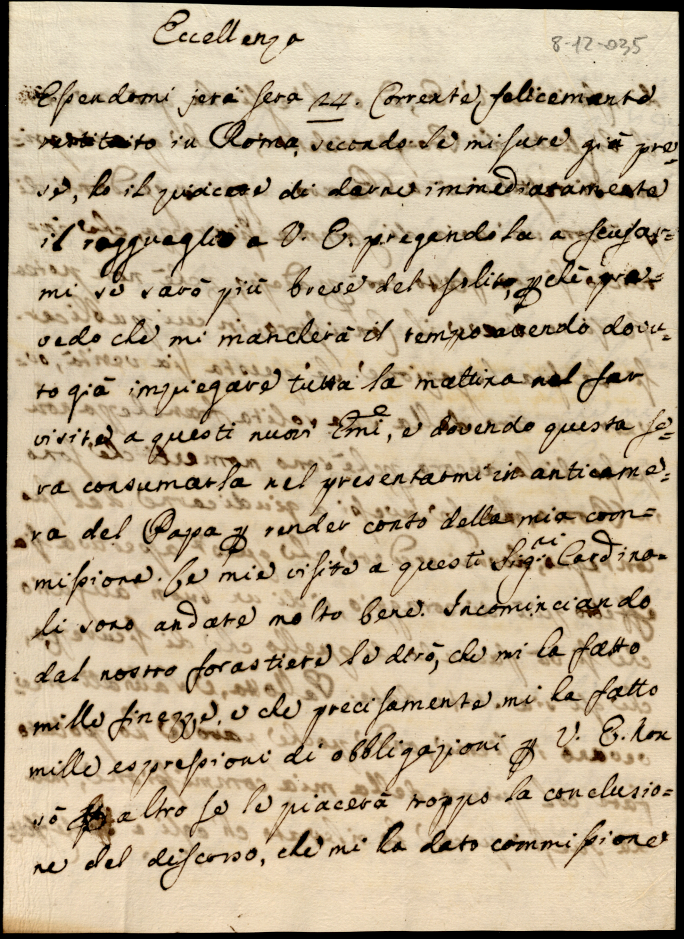 Eccellenza
8-12-035
Essendomi jera sera 24. Corrente felicemente
restituito in Roma, secondo le misure già pre=
se, ho il piacere di darne immediatamente
il ragguaglio a V. E. pregandola a scusar=
mi se sarò più breve del solito, perchè pre=
vedo che mi mancherà il tempo avendo dovu=
to già impiegare tutta la mattina nel far
visite a questi nuovi Emi, e dovendo questa se=
ra consumarla nel presentarmi in anticame=
ra del Papa per render conto della mia com=
missione. Le mie visite a questi Sig.ri Cardina=
li sono andate molto bene. Incominciando
dal nostro forastiere le dirò, che mi ha fatto
mille finezze, e che precisamente mi ha fatto
mille espressioni di obbligazioni per V. E. Non
sò altro se le piacerà troppo la conclusio=
ne del discorso, che mi ha dato commissione